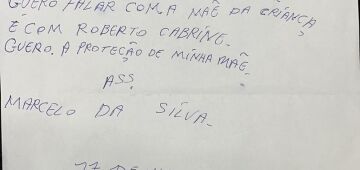 QUERO FALAR COM. A MÃE DA CRIANÇA
E COM ROBERTO CABRINE.
QUERO. A PROTEÇÃO DE MINHA MÃE.
ASS.
MARCELO DA SILVA.
17 DE